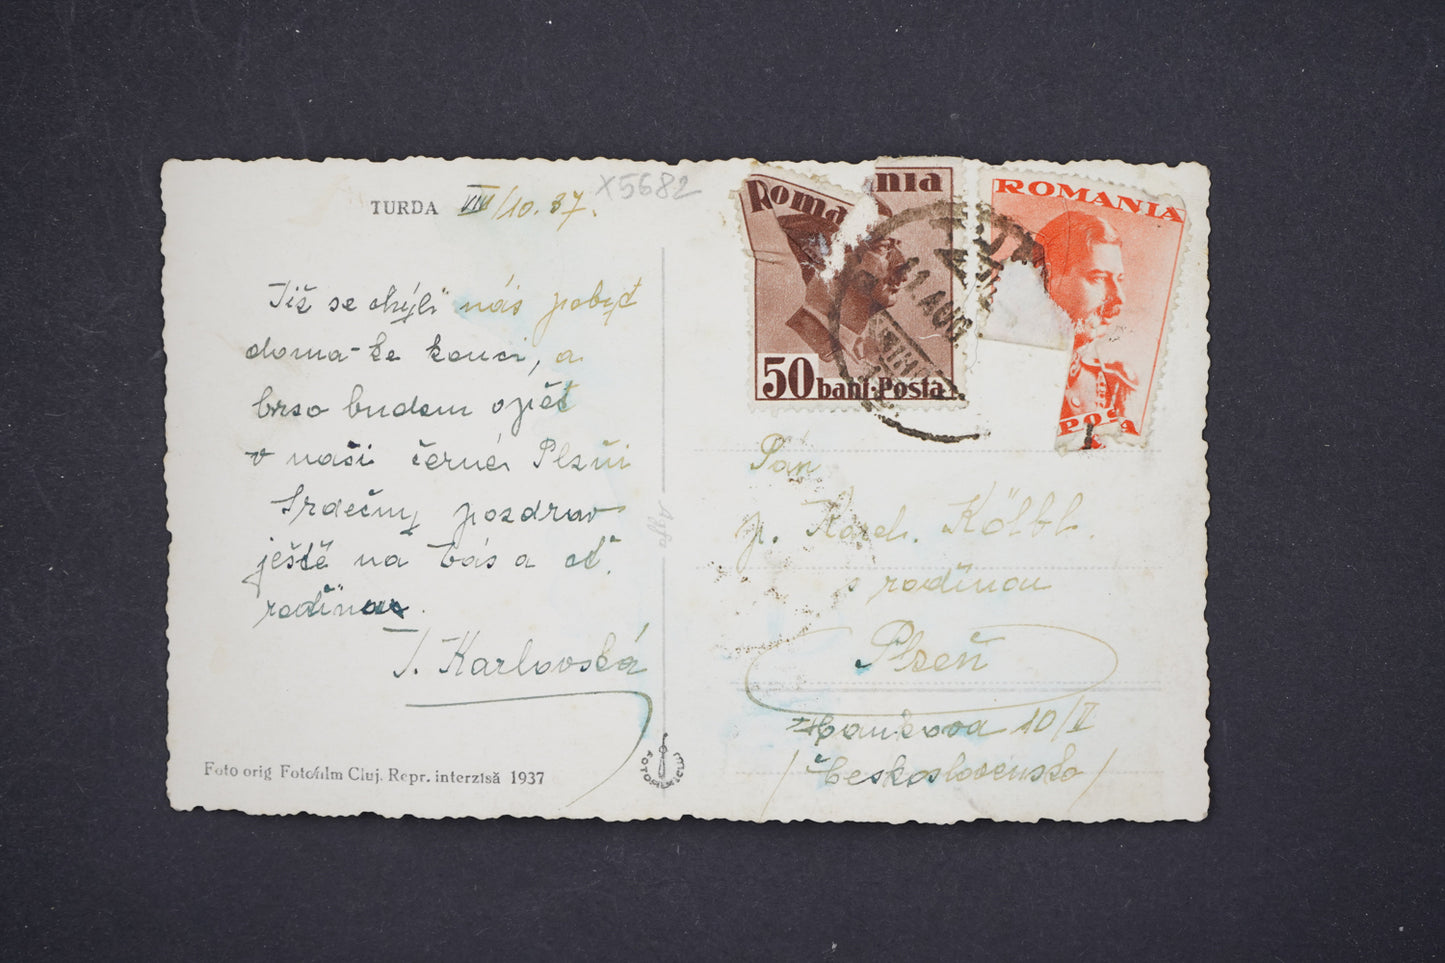 TURDA VIII/10.37.
X5682
Již se chýlí náš pobyt
doma-ke konci, a
brzo budem opět
v naší černé Plzni
Srdečný pozdrav
ještě na Vás a ct.
rodinu.
J. Karlovská
Foto orig Fotofilm Cluj. Repr. interzisă 1937
Agfa
FOTOFILM CLUJ
Romania
50 bani. Posta
ROMANIA
POSTA
11 AUG.
Pán
p. Karel Kölbl.
s rodinou
Plzeň
10/II
/Československo/